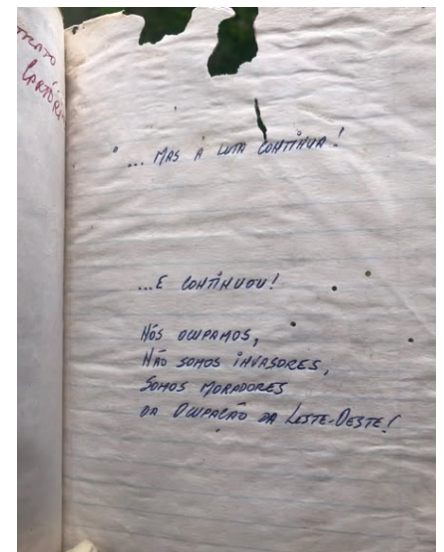 TRATO
CARTÓRI
"... MAS A LUTA CONTINUA!
...E CONTINUOU!
NÓS OCUPAMOS,
NÃO SOMOS INVASORES,
SOMOS MORADORES
DA OCUPAÇÃO DA LESTE-OESTE!